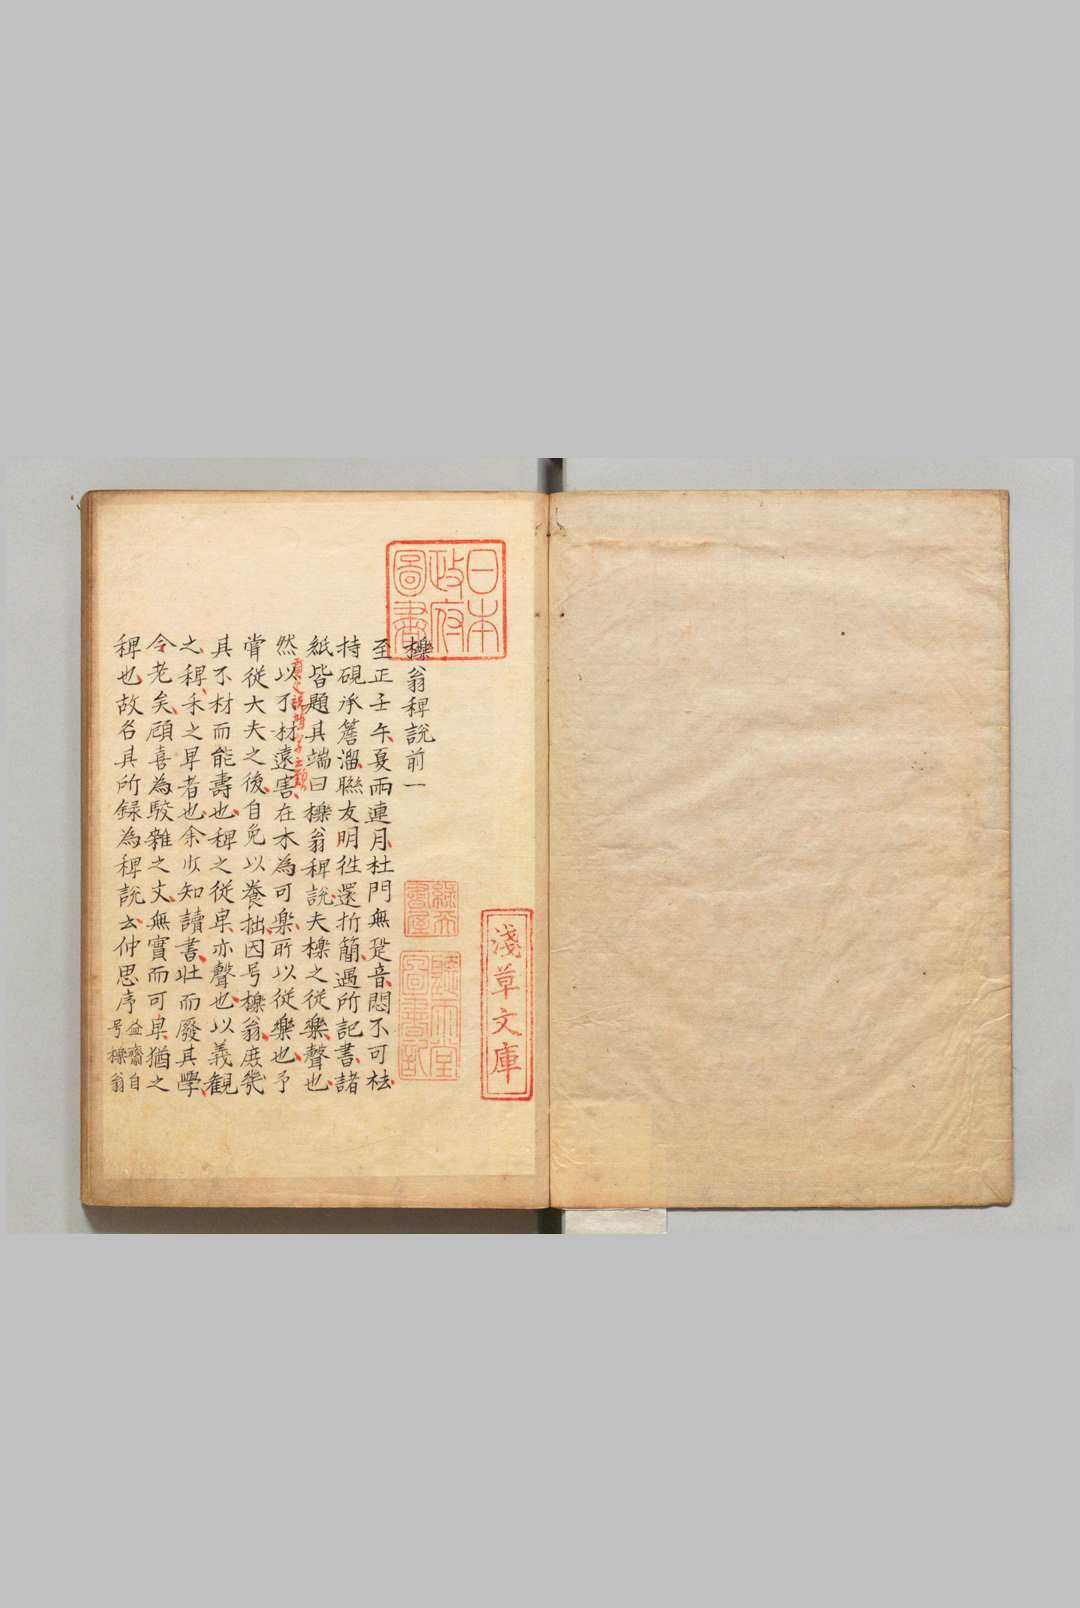 櫟翁稗説前一
至正壬午夏雨連月杜門無跫音悶不可袪
持硯承簷溜聯友朋徃還折簡遇所記書諸
紙皆題其端曰櫟翁稗説夫櫟之從樂聲也
然以不材遠害在木為可樂所以從樂也予
甞從大夫之後自免以養拙因号櫟翁庶幾
其不材而能壽也稗之從卑亦聲也以義觀
之稗禾之卑者也余少知讀書壯而廢其學
今老矣顧喜為駁雜之文無實而可卑猶之
稗也故名其所録為稗説云仲思序
益齋自
号櫟翁
日本
政府
圖書
淺草文庫